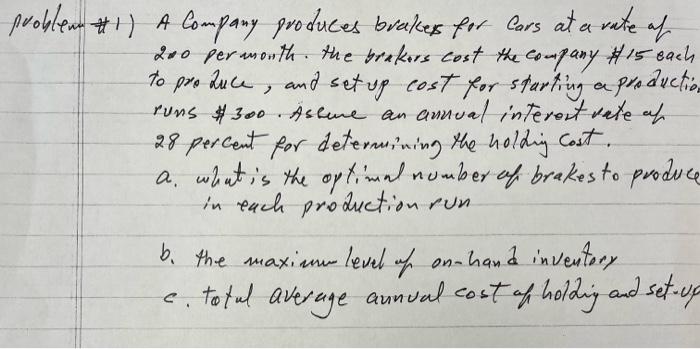 problem #1) A Company produces brakes for Cars at a rate of
200 per month. the brakers cost the company $15 each
to produce, and set up cost for starting a production
runs $300. Assume an annual interest rate of
28 percent for determining the holding cost.
a. what is the optimal number of brakes to produce
in each production run
b. the maximum level of on-hand inventory
c. total average annual cost of holding and set-up